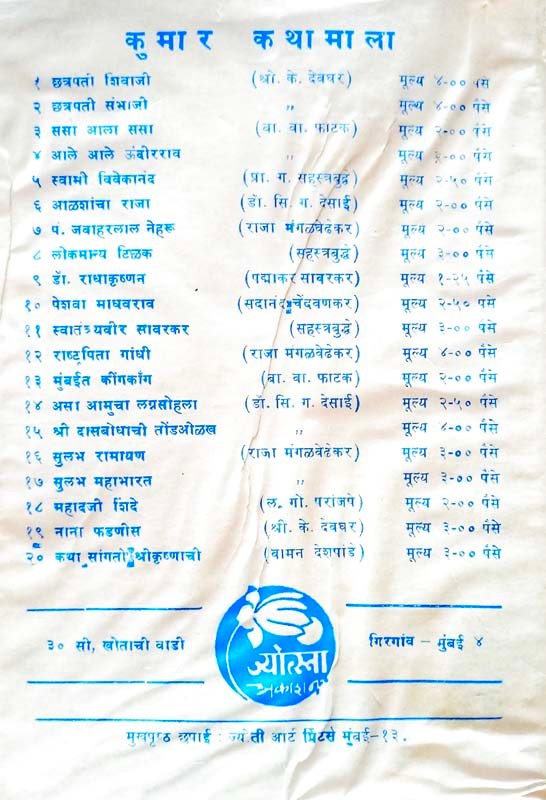 कुमार कथामाला
१ छत्रपती शिवाजी (श्री. के. देवधर) मूल्य ४-०० पैसे
२ छत्रपती संभाजी " मूल्य ४-०० पैसे
३ ससा आला ससा (वा. वा. फाटक) मूल्य २-०० पैसे
४ आले आले ऊंबीरराव " मूल्य ३-०० पैसे
५ स्वामी विवेकानंद (प्रा. ग. सहस्त्रबुद्धे) मूल्य २-५० पैसे
६ आळशांचा राजा (डॉ. सि. ग. देसाई) मूल्य २-०० पैसे
७ पं. जवाहरलाल नेहरू (राजा मंगळवेढेकर) मूल्य २-०० पैसे
८ लोकमान्य टिळक (सहस्त्रबुद्धे) मूल्य ३-०० पैसे
९ डॉ. राधाकृष्णन (पद्माकर सावरकर) मूल्य १-२५ पैसे
१० पेशवा माधवराव (सदानंद चेंदवणकर) मूल्य २-५० पैसे
११ स्वातंत्र्यवीर सावरकर (सहस्त्रबुद्धे) मूल्य ३-०० पैसे
१२ राष्ट्रपिता गांधी (राजा मंगळवेढेकर) मूल्य ४-०० पैसे
१३ मुंबईत कींगकाँग (वा. वा. फाटक) मूल्य २-०० पैसे
१४ असा आमुचा लग्नसोहला (डॉ. सि. ग. देसाई) मूल्य २-५० पैसे
१५ श्री दासबोधाची तोंडओळख " मूल्य ४-०० पैसे
१६ सुलभ रामायण (राजा मंगळवेढेकर) मूल्य ३-०० पैसे
१७ सुलभ महाभारत " मूल्य ३-०० पैसे
१८ महादजी शिंदे (ल. गो. परांजपे) मूल्य २-०० पैसे
१९ नाना फडणीस (श्री. के. देवधर) मूल्य ३-०० पैसे
२० कथा सांगतो श्रीकृष्णाची (वामन देशपांडे) मूल्य ३-०० पैसे
३० सी, खोताची वाडी
ज्योत्स्ना
प्रकाशन
गिरगांव - मुंबई ४
मुखपृष्ठ छपाई : ज्योती आर्ट प्रिंटर्स मुंबई-१३.